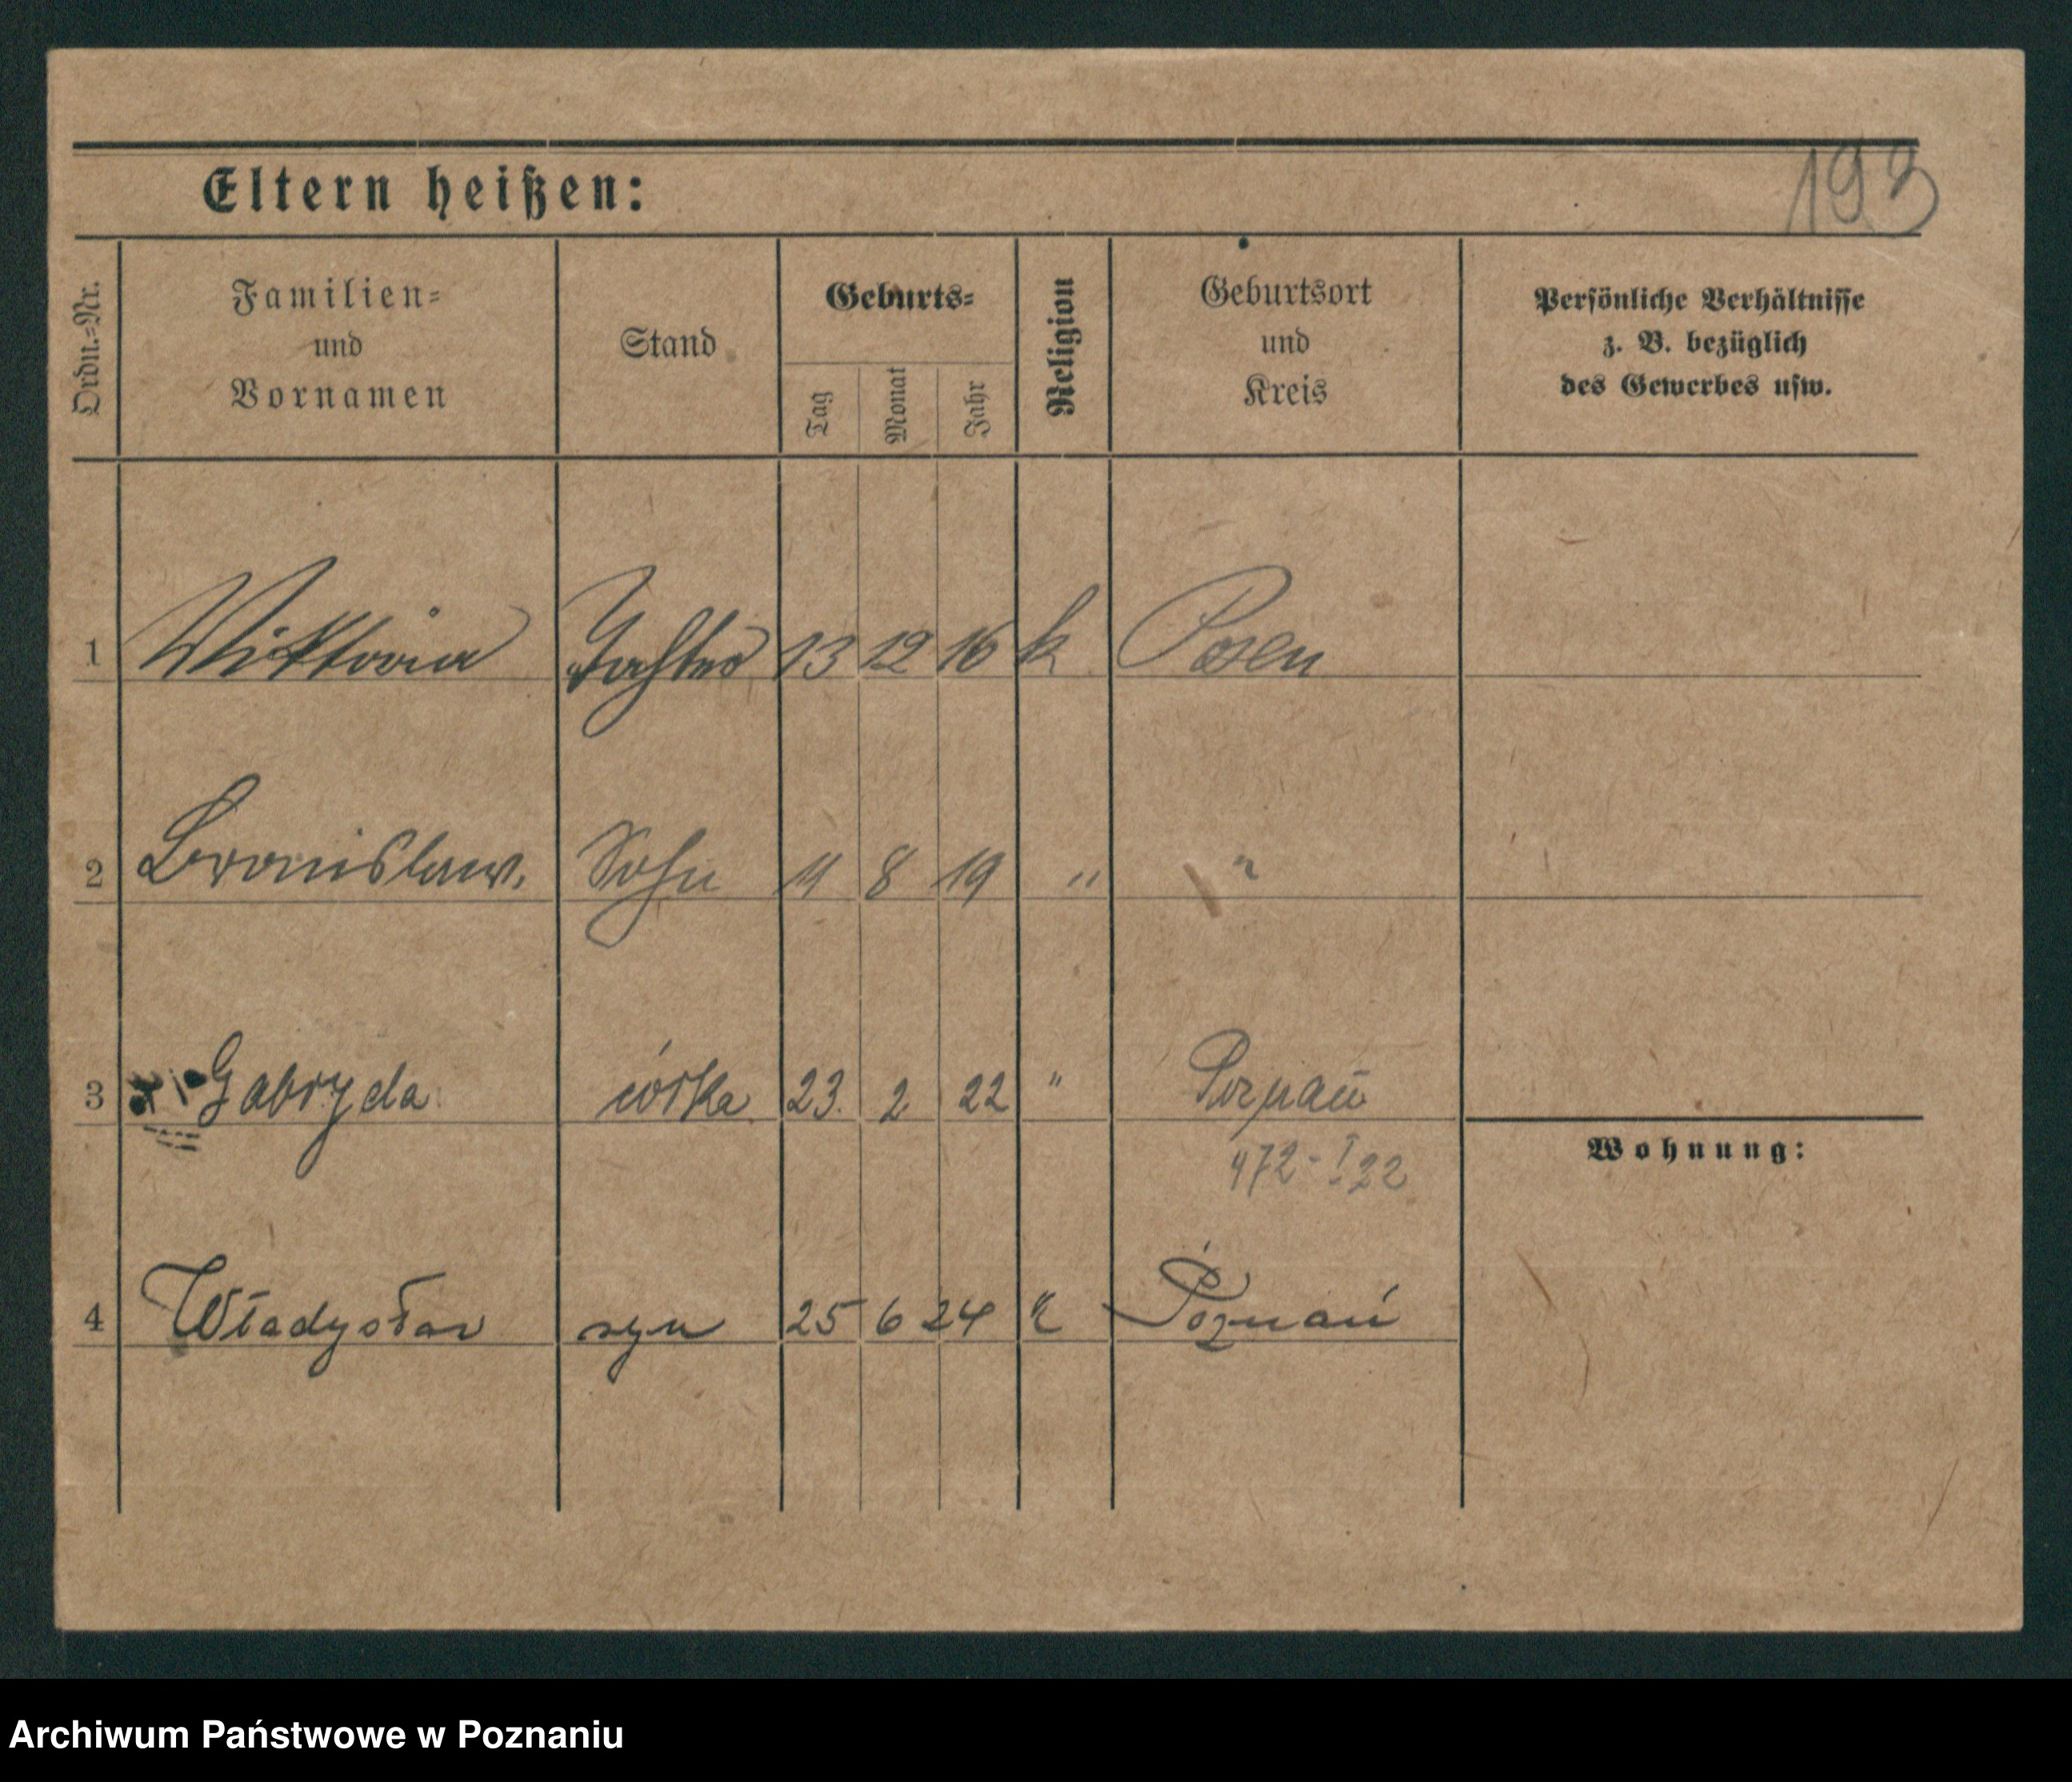 193
Eltern heißen:
Ordn.=Nr.
Familien=
und
Vornamen
Stand
Geburts=
Tag
Monat
Jahr
Religion
Geburtsort
und
Kreis
Persönliche Verhältnisse
z. B. bezüglich
des Gewerbes usw.
1 Wiktoria Tochter 13 12 16 k Posen
2 Bronislaw. Sohn 11 8 19 " "
3 Gabryela córka 23. 2 22 " Poznań
472-I 22
Wohnung:
4 Władysław syn 25 6 24 k Poznań
Archiwum Państwowe w Poznaniu